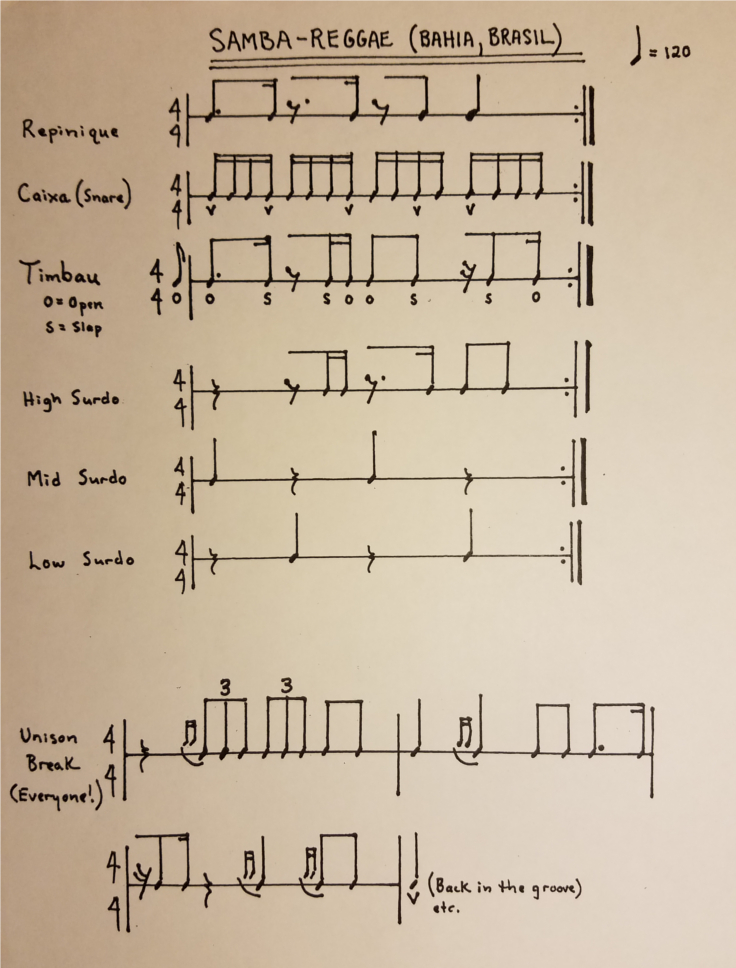 SAMBA-REGGAE (BAHIA, BRASIL)
♩ = 120
Repinique 4/4
Caixa (Snare) 4/4
V V V V V
Timbau 4/4
O = Open
S = Slap
O O S S O O S S O
High Surdo 4/4
Mid Surdo 4/4
Low Surdo 4/4
3 3
Unison 4/4
Break
(Everyone!)
4/4
V (Back in the groove)
etc.